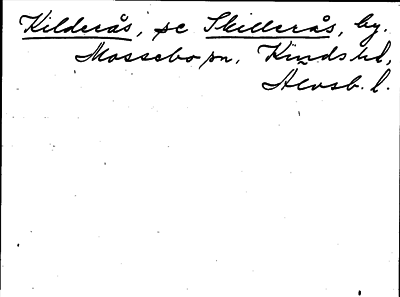 Kilderås, se Skillerås, by.
Mossebo sn, Kinds hd,
Älvsb. l.